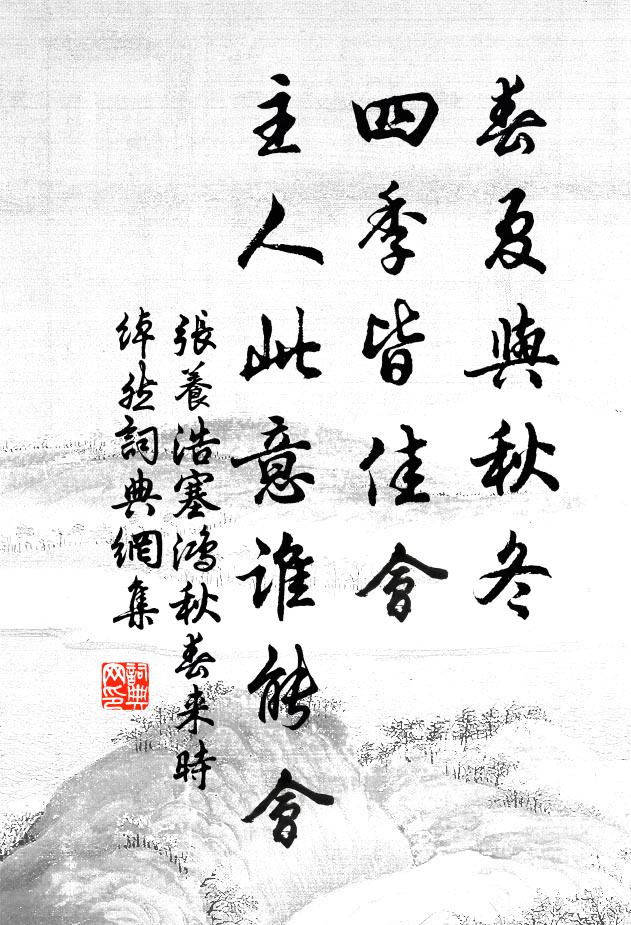 春夏與秋冬
四季皆佳會
主人此意誰能會
張養浩塞鴻秋春来時
绰然詞典網集
詞典网印